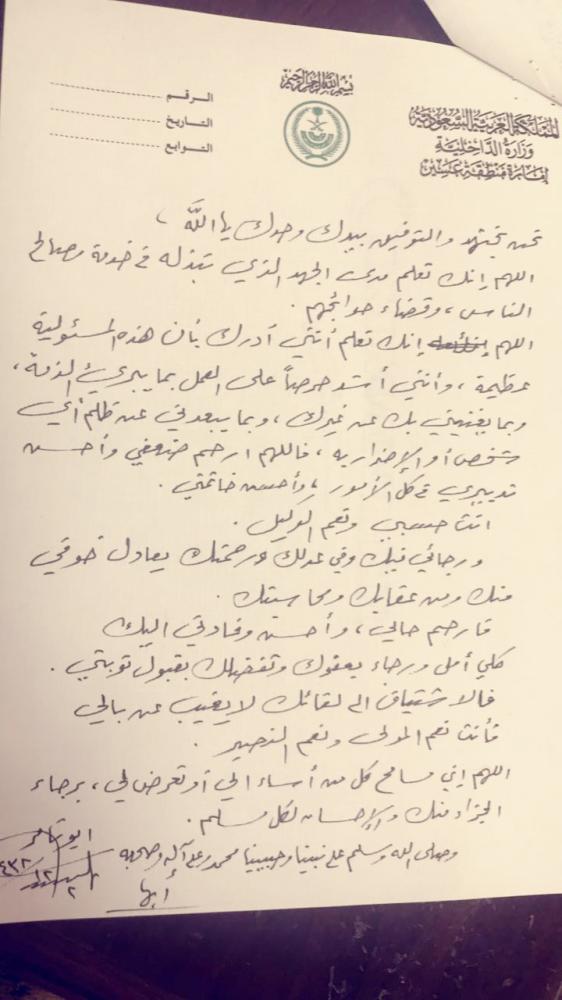 بسم الله الرحمن الرحيم
المملكة العربية السعودية
وزارة الداخلية
إمارة منطقة عسير
الرقم
التاريخ
التوابع
نحن نجتهد والتوفيق بيدك وحدك يا الله ،
اللهم إنك تعلم مدى الجهد الذي نبذله في خدمة ومصالح
الناس ، وقضاء حوائجهم .
اللهم إنك تعلم أنني أدرك بأن هذه المسئولية
عظيمة ، وأنني أشد حرصاً على العمل بما يبرئ الذمة ،
وبما يغنيني بك عن غيرك ، وبما يبعدني عن ظلم أي
شخص أو الإضرار به ، فاللهم ارحم ضعفي وأحسن
تدبيري في كل الأمور ، وأحسن خاتمتي .
أنت حسبي ونعم الوكيل .
ورجائي فيك وفي عدلك ورحمتك يعادل خوفي
منك ومن عقابك ومحاسبتك .
فارحم حالي ، وأحسن وفادتي اليك
كلي أمل ورجاء بعفوك وتفضلك بقبول توبتي .
فالاشتياق الى لقائك لا يغيب عن بالي
فأنت نعم المولى ونعم النصير .
اللهم إني مسامح كل من أساء الي أو تعرض لي ، برجاء
الجزاء منك والإحسان لكل مسلم .
وصلى الله وسلم على نبينا وحبيبنا محمد وعلى آله وصحبه
أبها